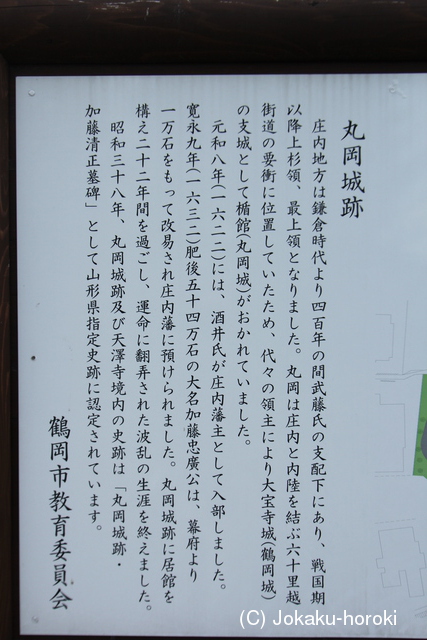 丸岡城跡
庄内地方は鎌倉時代より四百年の間武藤氏の支配下にあり、戦国期
以降上杉領、最上領となりました。丸岡は庄内と内陸を結ぶ六十里越
街道の要衝に位置していたため、代々の領主により大宝寺城(鶴岡城)
の支城として楯館(丸岡城)がおかれていました。
元和八年(一六二二)には、酒井氏が庄内藩主として入部しました。
寛永九年(一六三二)肥後五十四万石の大名加藤忠廣公は、幕府より
一万石をもって改易され庄内藩に預けられました。丸岡城跡に居館を
構え二十二年間を過ごし、運命に翻弄された波乱の生涯を終えました。
昭和三十八年、丸岡城跡及び天澤寺境内の史跡は「丸岡城跡・
加藤清正墓碑」として山形県指定史跡に認定されています。
鶴岡市教育委員会
(C) Jokaku-horoki